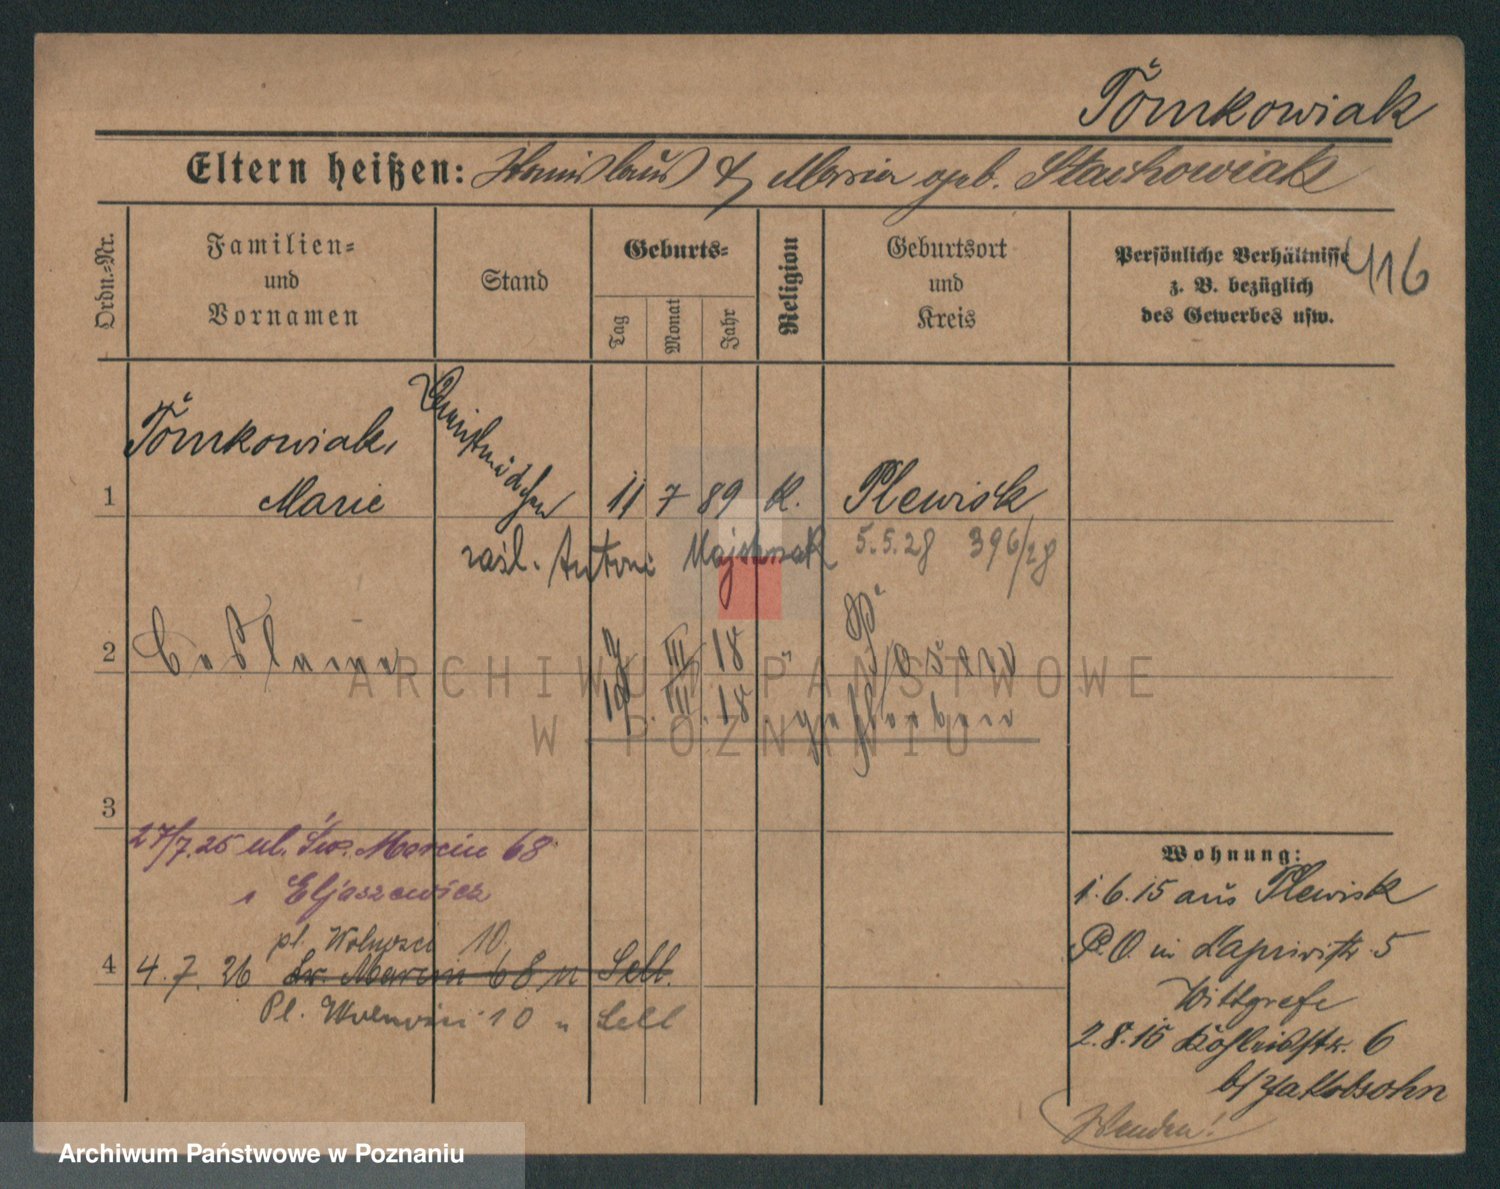 Tomkowiak
Eltern heißen: Stanislaus & Maria geb. Stachowiak
Ordn.-Nr.
Familien-
und
Vornamen
Stand
Geburts-
Tag
Monat
Jahr
Religion
Geburtsort
und
Kreis
Persönliche Verhältnisse
z. B. bezüglich
des Gewerbes usw.
416
1
Tomkowiak,
Marie
Dienstmädchen
11 7 89 K. Plewisk
zaśl. Antoni 5.5.28 396/28
2
III 18 " Posen
19. III. 18 gestorben
3
27/7.25 ul. Św. Marcin 68
Eljaszewicz
pl. Wolności 10
4
4.7.26 Św. Marcin 68 u Sell.
Pl. Wolności 10 u Sell
Wohnung:
1.6.15 aus Plewisk
P.O. in 5
Wittgrefe
2.8.15 6
b/ Jakobsohn
Wenden!
ARCHIWUM PAŃSTWOWE
W POZNANIU
Archiwum Państwowe w Poznaniu